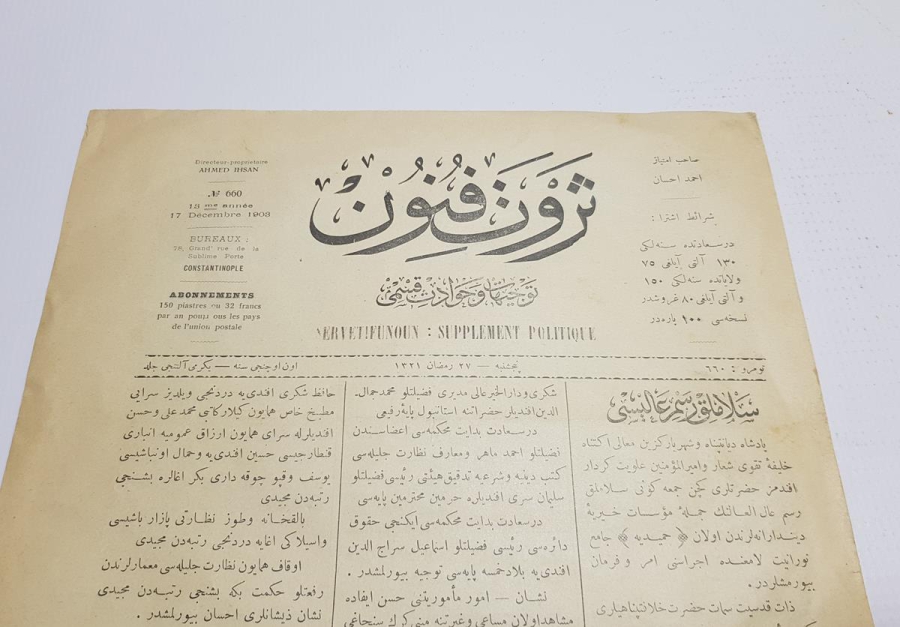 Directeur-propriétaire
AHMED IHSAN
№ 660
13 me année
17 Décembre 1903
BUREAUX :
79, Grand' rue de la
Sublime Porte
CONSTANTINOPLE
ABONNEMENTS
150 piastres ou 32 francs
par an pour tous les pays
de l'union postale
ثروت فنون
توجيهات و حوادث قسمی
SERVETIFUNOUN : SUPPLEMENT POLITIQUE
صاحب امتیاز
احمد احسان
شرائط اشترا :
درسعادتده سنه لکی
۱۳۰ آلتی آیلغی ۷۵
ولایاتده سنه لکی ۱۵۰
و آلتی آیلغی ۸۰ غروشدر
نسخه سی ۱۰۰ پاره در
نومرو : ٦٦٠
پنجشنبه — ۲۷ رمضان ۱۳۲۱
اون اوچنجی سنه — یکرمی آلتنجی جلد
سلاملق رسم عالیسی
پادشاه دیانتپناه و شهریار کزین معالی اکتناه
خلیفهٔ تقوی شعار و امیرالمؤمنین علویت کردار
افندمز حضرتلری کچن جمعه کونی سلاملق
رسم عال العالنك جملهٔ مؤسسات خیریهٔ
دیندارانه لرندن اولان ﴿ حمیدیه ﴾ جامع
نورانیت لامعنده اجراسنی امر و فرمان
بیورمشلردر .
ذات قدسیت سمات حضرت خلافتپناهیلری
شکری و دارالخیر عالی مدیری فضیلتلو محمد جمال
الدین افندیلر حضراتنه استانبول پایهٔ رفیعی
درسعادت بدایت محکمه سی اعضاسندن
فضیلتلو احمد ماهر و معارف نظارت جلیله سی
کتب دینیه و شرعیه تدقیق هیئتی رئیسی فضیلتلو
سلیمان سری افندیلره حرمین محترمین پایه سی
درسعادت بدایت محکمه سی ایکنجی حقوق
دائره سی رئیسی فضیلتلو اسماعیل سراج الدین
افندی یه بلاد خمسه پایه سی توجیه بیورلمشدر .
نشان — امور مأموریتنی حسن ایفاده
مشاهد اولان مساعی و غیرتنه مبنی کرك سنجاغی
حافظ شکری افندی یه دردنجی و یلدیز سرایی
مطبخ خاص همایون کیلار کاتبی محمد علی و حسن
افندیلرله سرای همایون ارزاق عمومیه انباری
قنطارجیسی حسین افندی یه و حمال اونباشیسی
یوسف و قپو چوقه داری بکر اغالره بشنجی
رتبه دن مجیدی
بالقخانه و طوز نظارتی پازار باشیسی
واسیلاکی اغایه دردنجی رتبه دن مجیدی
اوقاف همایون نظارت جلیله سی معمارلرندن
رفعتلو حکمت بکه بشنجی رتبه دن مجیدی
نشان ذیشانلری احسان بیورلمشدر .